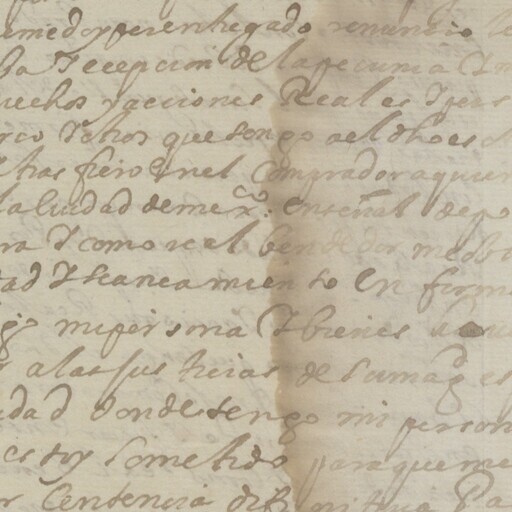 medoy por entregado renuncio le
ha Y ecepcion de la pecunia Y n
rechos y acciones Reales Y pers
rco Y otros que tengo a el dho escl
tras fiero en el Comprador a quien
la Ciudad de mexco. en señal de po
ra Y como real bendedor me obl
dad Y saneamiento en firm
go mi persona Y bienes
r a las justicias de su magd es
udad donde tengo mi person
estoy sometido para que me
r Centencia difinitiva Pa